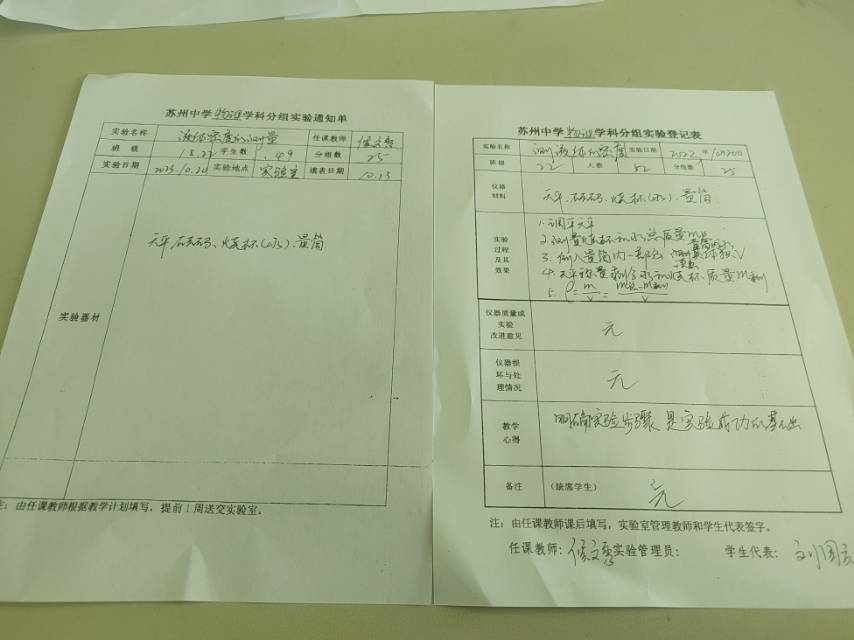 苏州中学物理学科分组实验通知单
实验名称 液体密度的测量 任课教师
班 级 学生数 49 分组数 25
实验日期 2023.10.20 实验地点 实验室 填表日期 10.13
实验器材 天平、砝码、烧杯(水)、量筒
注：由任课教师根据教学计划填写，提前1周送交实验室。
苏州中学物理学科分组实验登记表
实验名称 测液体的密度 实验日期 年10月20日
班级 22 人数 52 分组数 25
仪器材料 天平、砝码、烧杯(水)、量筒
实验过程及其效果
1.调平天平
2.测量烧杯和水总质量m总
3.倒入量筒内一部分
4.天平称量剩余水和烧杯质量m剩
5. ρ=m/V=(m总-m剩)/V
仪器质量或实验改进意见 无
仪器损坏与处理情况 无
教学心得 明确实验步骤是实验成功的基础
备注 (缺席学生) 无
注：由任课教师课后填写，实验室管理教师和学生代表签字。
任课教师： 实验管理员： 学生代表：